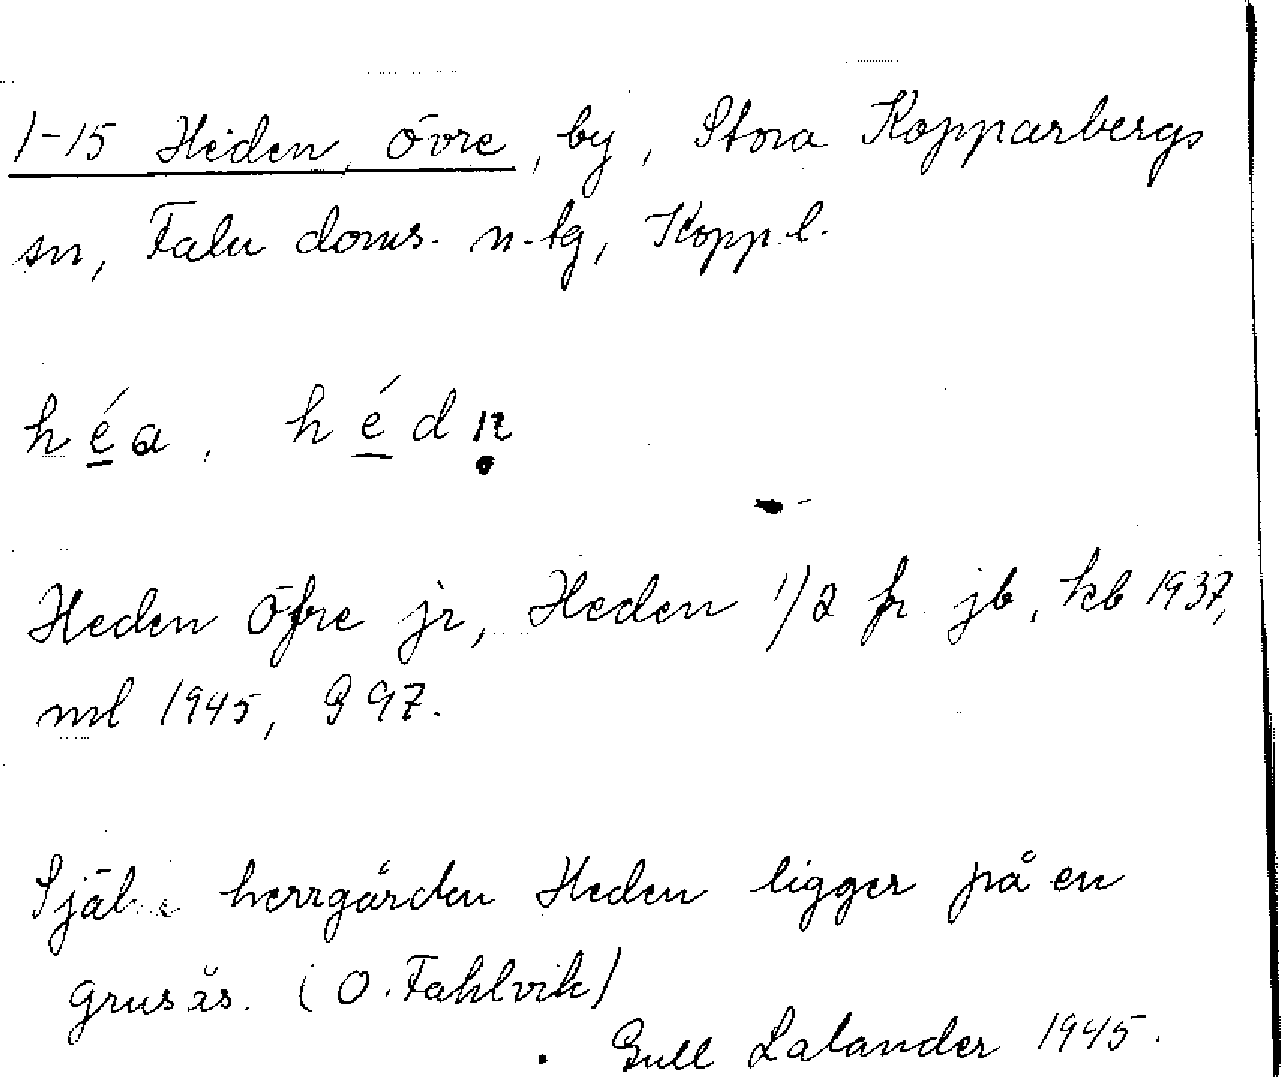 1-15 Heden, övre, by, Stora Kopparbergs
sn, Falu doms. n. tg, Kopp.l.
héa, hédn̥
Heden Öfre jr, Heden 1/2 fr jb, kb 1937,
ml 1945, G 97.
Själve herrgården Heden ligger på en
grusås. (O. Fahlvik)
Gull Lalander 1945.